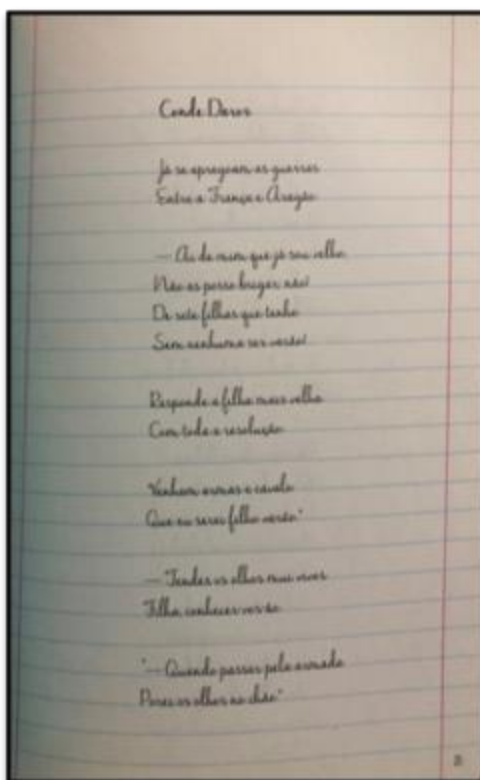 Conde Daros
Já se apregoam as guerras
Entre a França e Aragão
— Ai de mim que já sou velho
Não as posso brigar, não!
De sete filhas que tenho
Sem nenhuma ser varão!
Responde a filha mais velha
Com toda a resolução
Venham armas e cavalo
Que eu serei filho varão"
— "Tendes os olhos mui vivos
Filha, conhecer-vos-ão
"— Quando passar pela armada
Porei os olhos no chão"